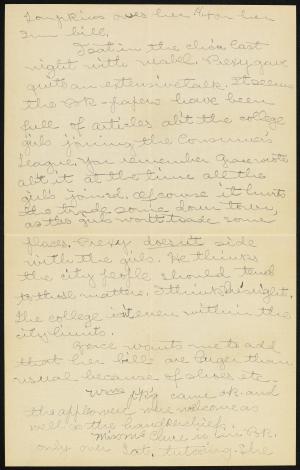 owes her for her
bill.
I sat in the choir last
night with Mabel. Prexy gave
quite an extensive talk. It seems
the Pk-papers have been
full of articles abt the college
girls joining the Consumers
League. You remember Grace wrote
abt it at the time all the
girls joined. Of course it hurts
the trade some down town,
as the girls won't trade some
places. Prexy doesn't side
with the girls. He thinks
the city people should tend
to those matters. I think he's right.
The college isn't even within the
city limits.
Grace wants me to add
that her bills are larger than
usual because of shoes etc.
came o.k. and
the apples were welcome as
well as the handkerchief.
Clure is in Pk.
only over Sat. tutoring. The